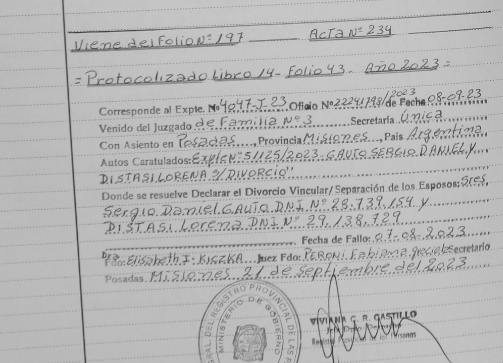 Viene del Folio Nº 197 Acta Nº 234
= Protocolizado Libro 14 - Folio 43 - Año 2023 =
Corresponde al Expte. Nº 4047-J-23 Oficio Nº 22241793/2023 de Fecha 08-09-23
Venido del Juzgado de Familia Nº 3 Secretaría Única
Con Asiento en Posadas, Provincia Misiones, Pais Argentina
Autos Caratulados: Expte Nº 51125/2023 GAUTO SERGIO DANIEL Y
DISTASI LORENA S/ DIVORCIO"
Donde se resuelve Declarar el Divorcio Vincular/ Separación de los Esposos: Sres.
Sergio Daniel GAUTO DNI Nº 28.739.159 y
DISTASI Lorena DNI Nº 29.138.729
Fecha de Fallo: 07-08-2023
Fdo: Dra Elisabeth J. KICZKA Juez Fdo: PERONI Fabiana Secretario
Posadas, Misiones 21 de Septiembre del 2023
REGISTRO PROVINCIAL DE LAS
MINISTERIO DE GOBIERNO
VIVIANA G. R. CASTILLO